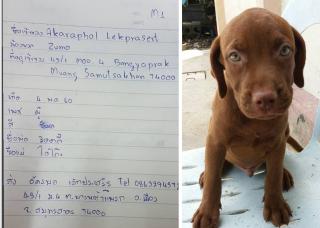 M1
ชื่อเจ้าของ Akaraphol Lekprasert
ชื่อหมา Zumo
ที่อยู่เจ้าของ 45/1 moo 4 Bangyaprak
Muang, Samutsakhon 74000
เกิด 4 พค 60
เพศ ผู้
สี
ชื่อพ่อ
ชื่อแม่ โกโก้
ส่ง อัครพล เล็กประเสริฐ Tel
45/1 ม.4 ต. บางหญ้าแพรก อ. เมือง
จ. สมุทรสาคร 74000